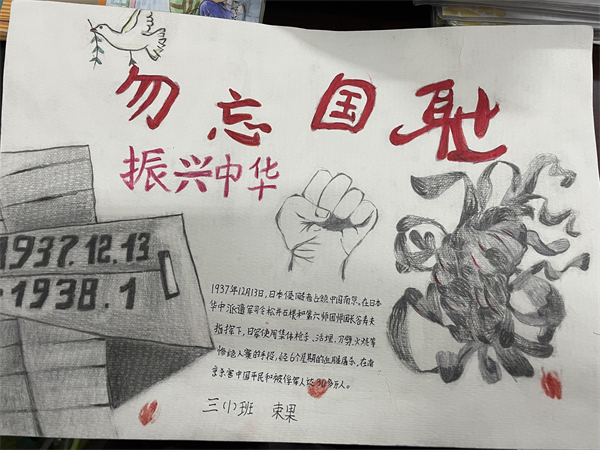 勿忘国耻
振兴中华
1937.12.13
-1938.1
1937年12月13日,日本侵略者占领中国南京,在日本
华中派遣军司令松井石根和第六师团师团长谷寿夫
指挥下,日军使用集体枪杀、活埋、刀劈、火烧等
惨绝人寰的手段,经6个星期的血腥屠杀,在南
京杀害中国平民和被俘军人达30多万人。
三(小)班 束果